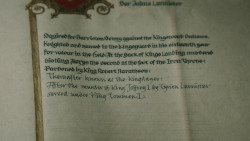 Ser Jaime Lannister
Squired for Barristan Selmy against the Kingswood Outlaws.
Knighted and named to the Kingsguard in his sixteenth year
for valor in the field. At the Sack of King's Landing murdered
his King Aerys the second at the foot of the Iron Throne.
Pardoned by King Robert Baratheon.
Thereafter known as the Kingslayer.
After the murder of King Joffrey I by Tyrion Lannister
served under King Tommen I.